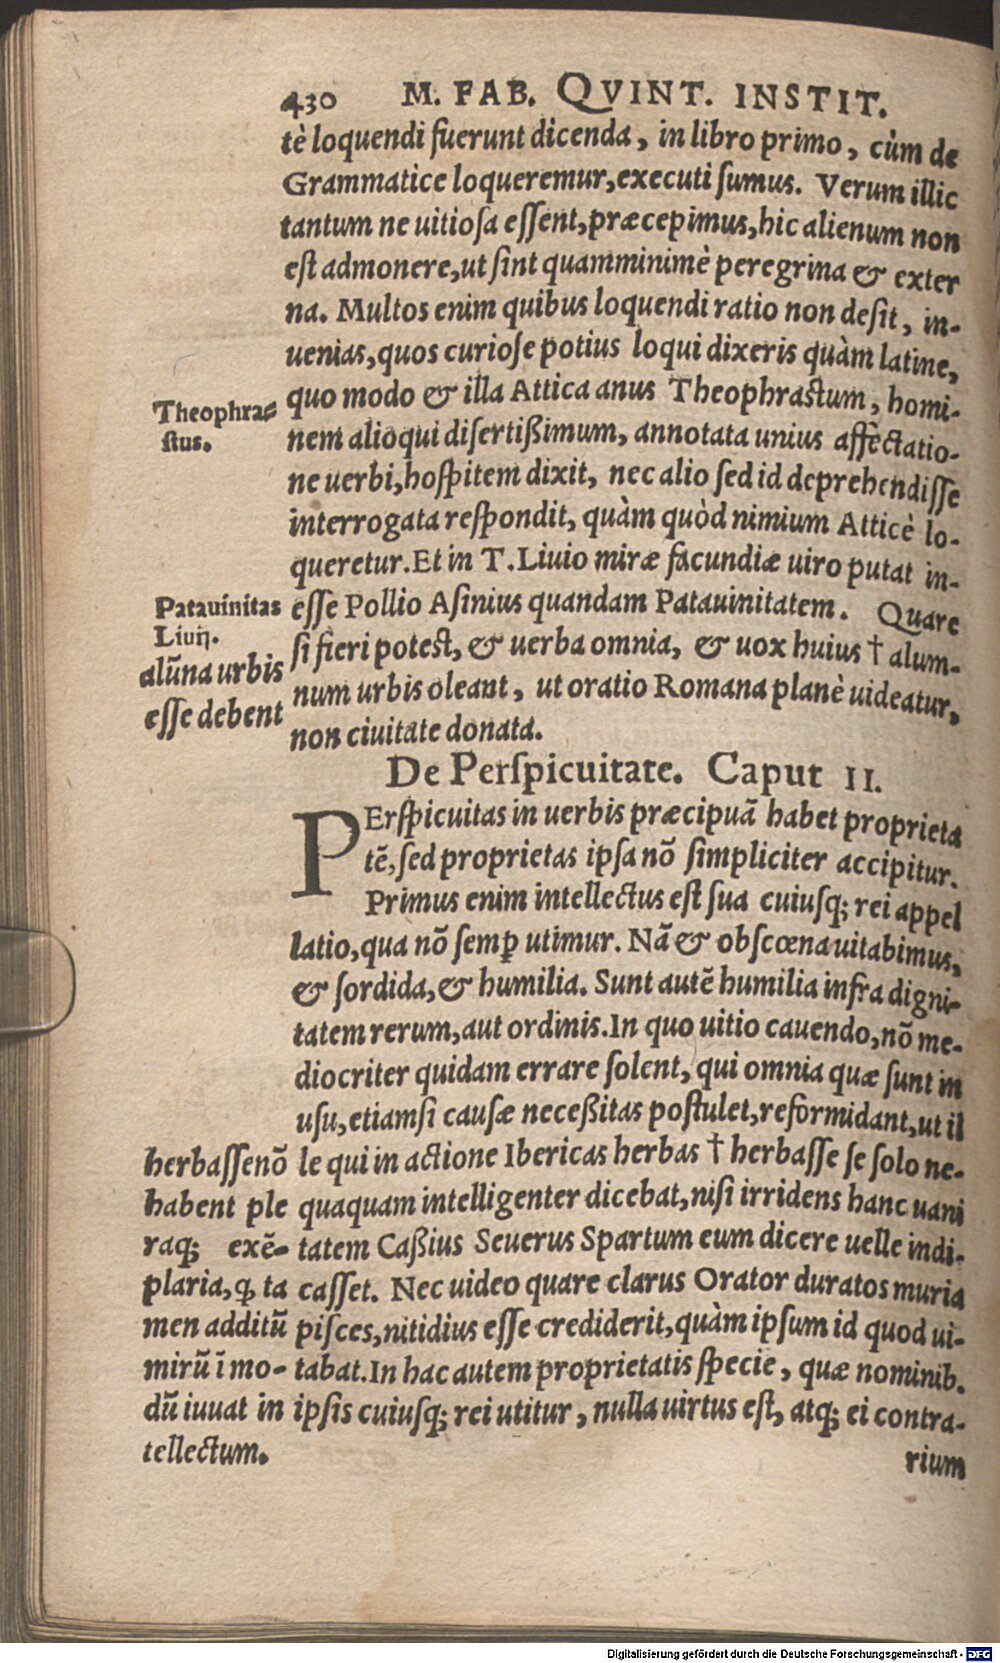 430 M. FAB. QVINT. INSTIT.
tè loquendi fuerunt dicenda, in libro primo, cùm de
Grammatice loqueremur, executi ſumus. Verum illic
tantum ne uitioſa eſſent, præcepimus, hic alienum non
eſt admonere, ut ſint quamminimè peregrina & exter
na. Multos enim quibus loquendi ratio non deſit, in-
uenias, quos curioſe potius loqui dixeris quàm latine,
quo modo & illa Attica anus Theophraſtum, homi-
nem alioqui diſertißimum, annotata unius affectatio-
ne uerbi, hoſpitem dixit, nec alio ſed id deprehendiſſe
interrogata reſpondit, quàm quòd nimium Atticè lo-
queretur. Et in T. Liuio miræ facundiæ uiro putat in-
eſſe Pollio Aſinius quandam Patauinitatem. Quare
ſi fieri poteſt, & uerba omnia, & uox huius † alum-
num urbis oleant, ut oratio Romana planè uideatur,
non ciuitate donata.
Theophra⸗
ſtus.
Patauinitas
Liuij.
alũna urbis
eſſe debent
De Perſpicuitate. Caput II.
PErſpicuitas in uerbis præcipuã habet proprieta
tẽ, ſed proprietas ipſa nõ ſimpliciter accipitur.
Primus enim intellectus eſt ſua cuiuſq; rei appel
latio, qua nõ ſemꝑ utimur. Nã & obſcœna uitabimus,
& ſordida, & humilia. Sunt autẽ humilia infra digni-
tatem rerum, aut ordinis. In quo uitio cauendo, nõ me-
diocriter quidam errare ſolent, qui omnia quæ ſunt in
uſu, etiamſi cauſæ neceßitas poſtulet, reformidant, ut il
le qui in actione Ibericas herbas † herbaſſe ſe ſolo ne-
quaquam intelligenter dicebat, niſi irridens hanc uani
tatem Caßius Seuerus Spartum eum dicere uelle indi-
caſſet. Nec uideo quare clarus Orator duratos muria
piſces, nitidius eſſe crediderit, quàm ipſum id quod ui-
tabat. In hac autem proprietatis ſpecie, quæ nominib.
ipſis cuiuſq; rei utitur, nulla uirtus eſt, atq; ei contra-
rium
herbaſſenõ
habent ple
raq; exẽ-
plaria, ꝗ ta
men additũ
mirũ ĩ mo-
dũ iuuat in
tellectum.
Digitalisierung gefördert durch die Deutsche Forschungsgemeinschaft - DFG